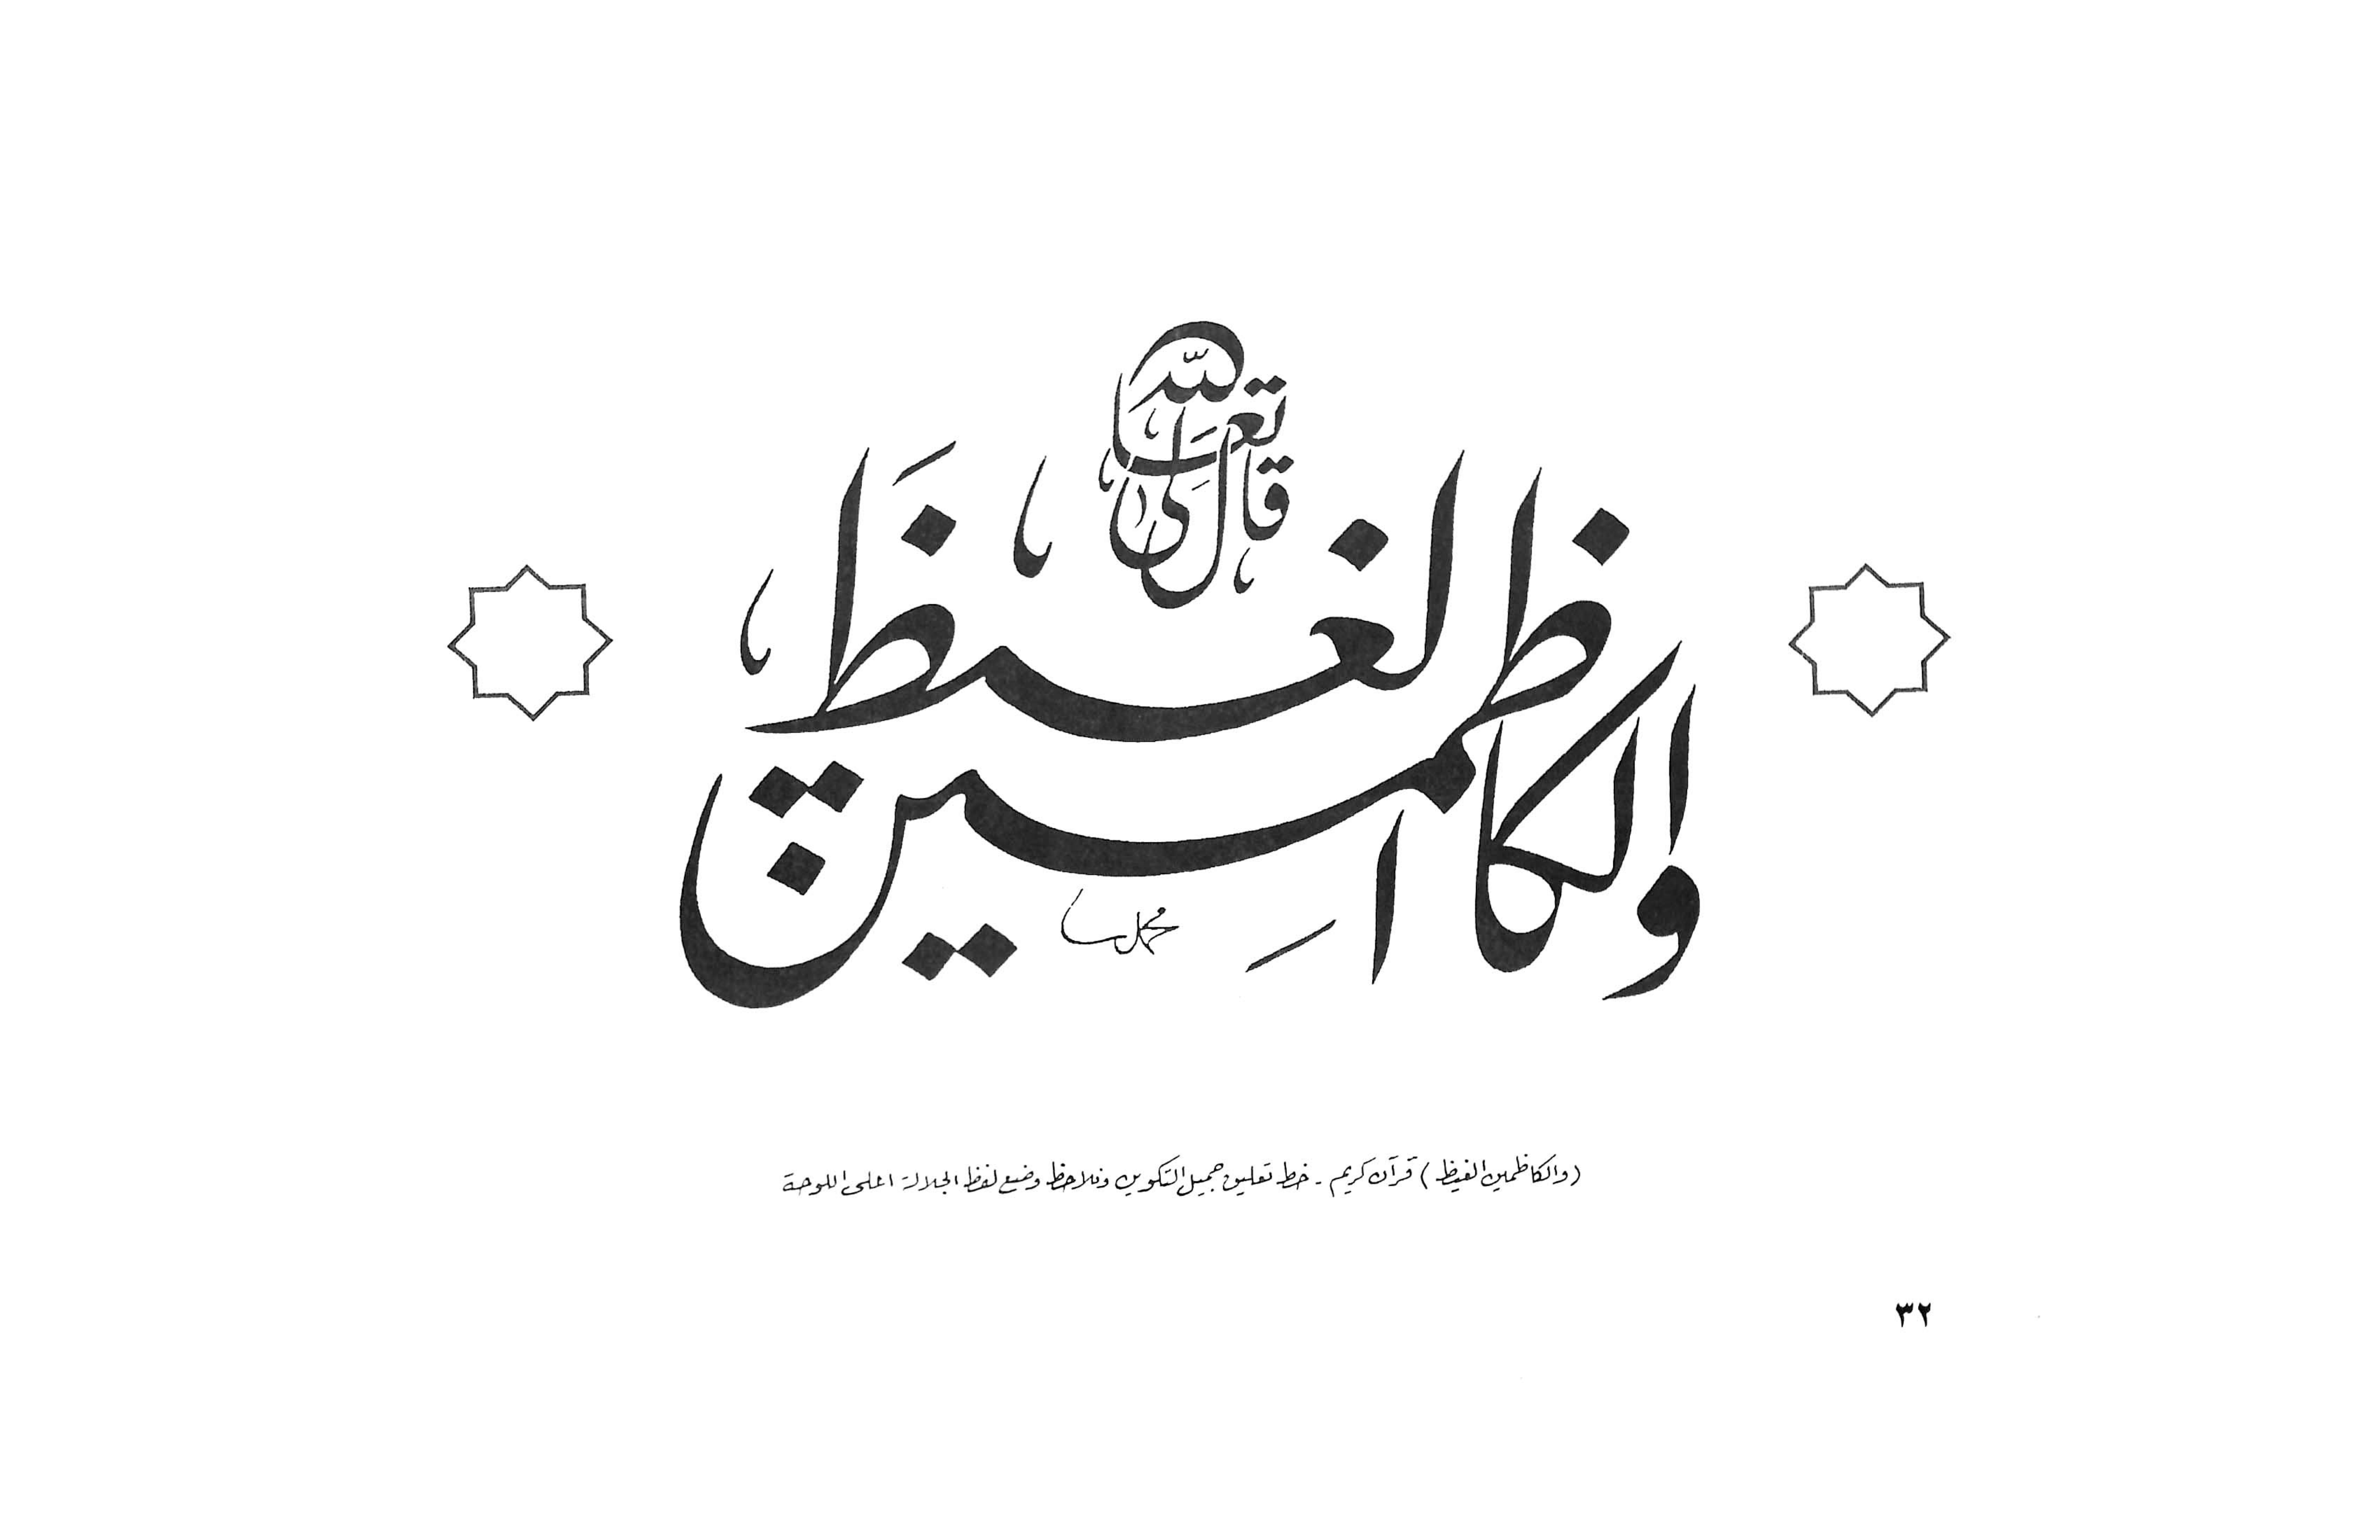 قال الله تعالى
والكاظمين الغيظَ
محمد
(والكاظمين الغيظ) قرآن كريم - خط تعليق جميل التكوين ونلاحظ وضع لفظ الجلالة اعلى اللوحة
٣٢